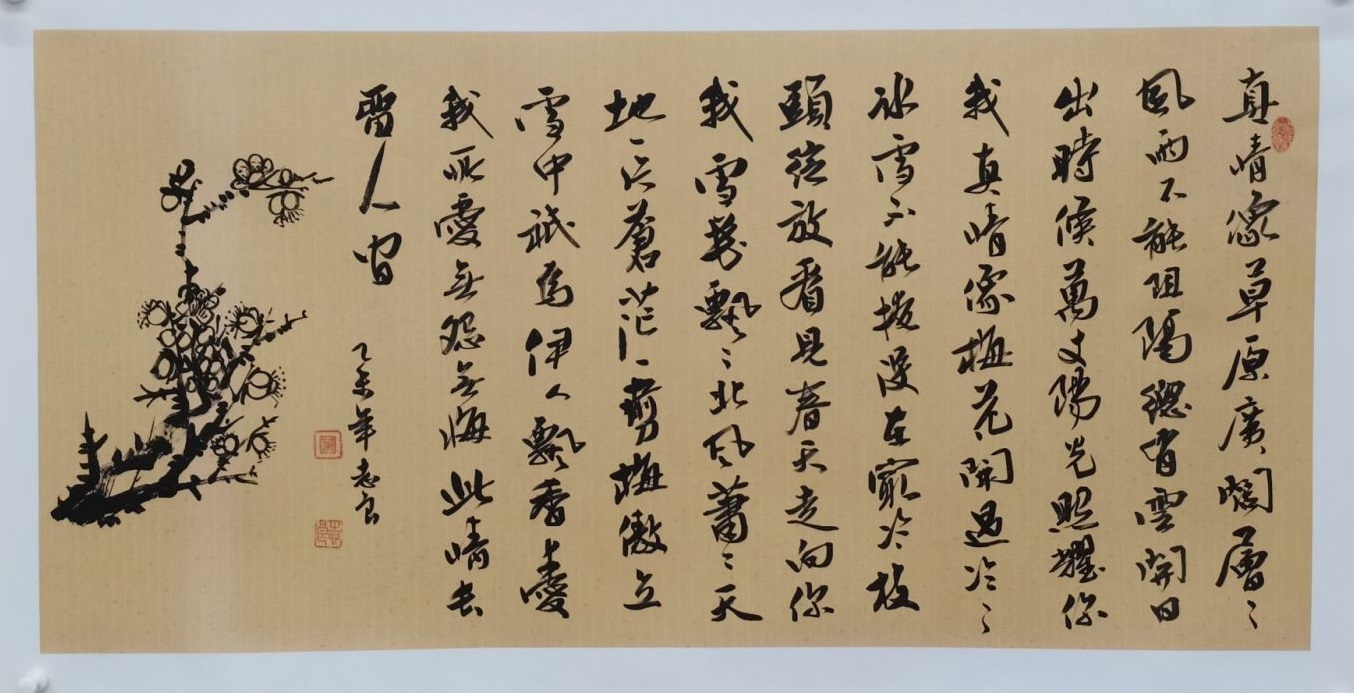 真情像草原廣闊層〻
風雨不能阻隔總有雲開日
出時候萬丈陽光照耀你
我真情像梅花開過冷〻
冰雪不能掩沒在最冷枝
頭綻放看見春天走向你
我雪花飄〻北风蕭〻天
地一片蒼茫一剪梅傲立
雪中祇為伊人飄香愛
我所愛無怨無悔此情長
留人間
乙未年志良